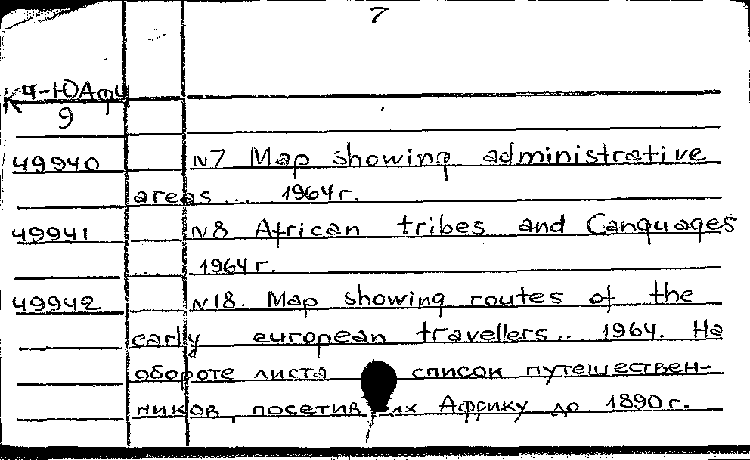 7
К4-ЮАф4
9
49940 N7 Map showing administrative
areas ... 1964г.
49941 N8 African tribes and Canguages
1964г.
49942 N18. Map showing routes of the
early european travellers... 1964. На
обороте листа список путешествен-
ников, посетивших Африку до 1890г.